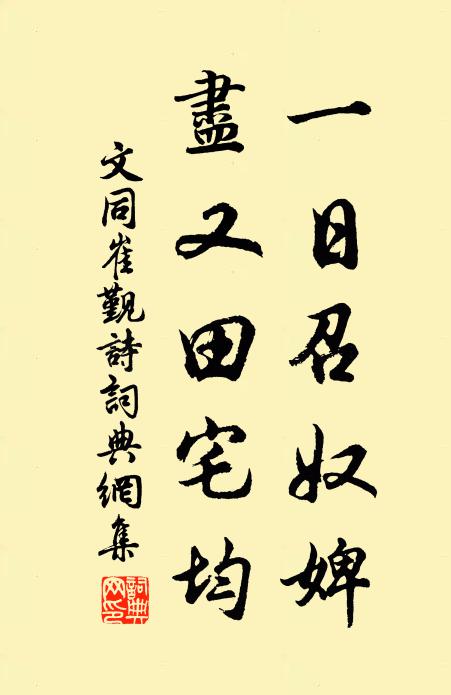 一日召奴婢
盡又田宅均
文同崔觐詩詞典網集
詞典網印